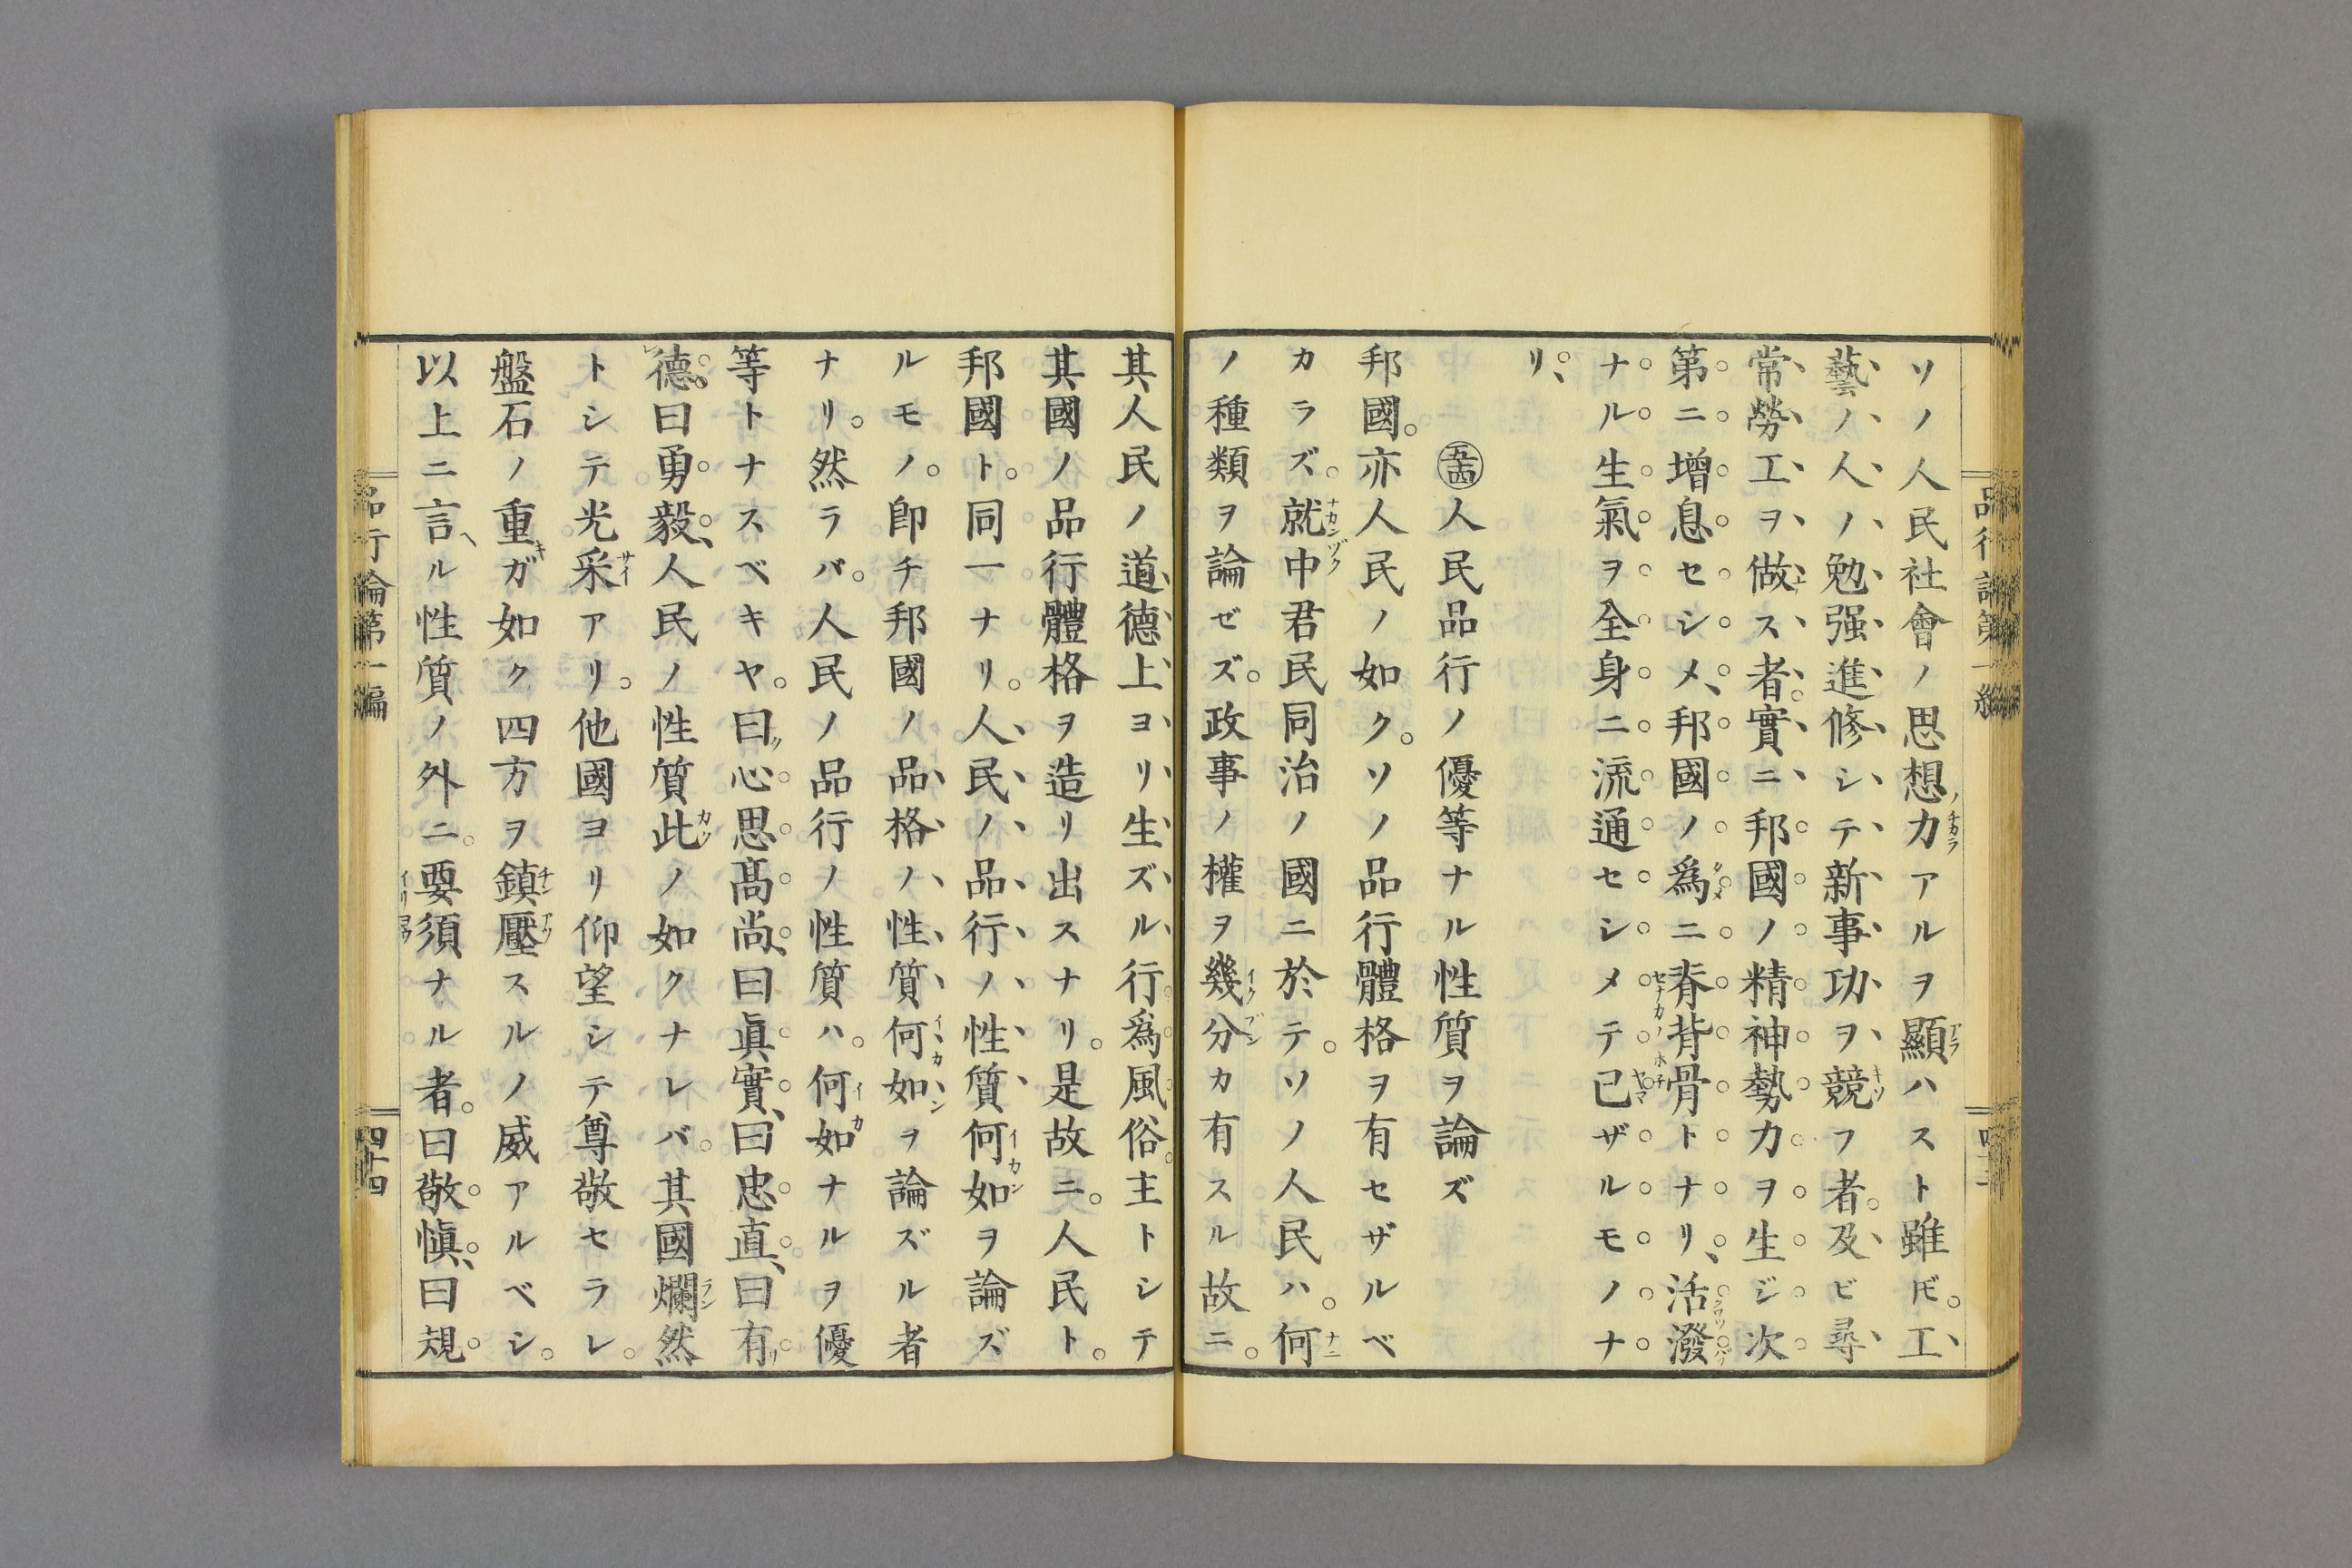 ソノ人民社會ノ思想力アルヲ顯ハスト雖𪜈。工
藝ノ人ノ勉强進修シテ新事功ヲ競フ者。及ビ尋
常勞工ヲ做ス者。實ニ邦國ノ精神勢力ヲ生ジ次
第ニ增息セシメ、邦國ノ爲ニ脊背骨トナリ、活潑
ナル生氣ヲ全身ニ流通セシメテ已ザルモノナ
リ、
㊄㊃人民品行ノ優等ナル性質ヲ論ズ
邦國。亦人民ノ如ク。ソノ品行體格ヲ有セザルベ
カラズ。就中君民同治ノ國ニ於テ。ソノ人民ハ。何
ノ種類ヲ論ゼズ。政事ノ權ヲ幾分カ有スル故ニ。
其人民ノ道德上ヨリ生ズル行爲風俗。主トシテ
其國ノ品行體格ヲ造リ出スナリ。是故ニ。人民ト。
邦國ト。同一ナリ。人民ノ品行ノ性質何如ヲ論ズ
ルモノ。卽チ邦國ノ品格ノ性質何如ヲ論ズル者
ナリ。然ラバ。人民ノ品行ノ性質ハ。何如ナルヲ優
等トナスベキヤ。曰心思高尚、曰眞實、曰忠直、曰有
德。曰勇毅、人民ノ性質此ノ如クナレバ。其國爛然
トシテ光采アリ。他國ヨリ仰望シテ尊敬セラレ。
盤石ノ重ガ如ク四方ヲ鎮壓スルノ威アルベシ。
以上ニ言ル性質ノ外ニ。要須ナル者。曰敬愼、曰規
品行論第一編
四十四